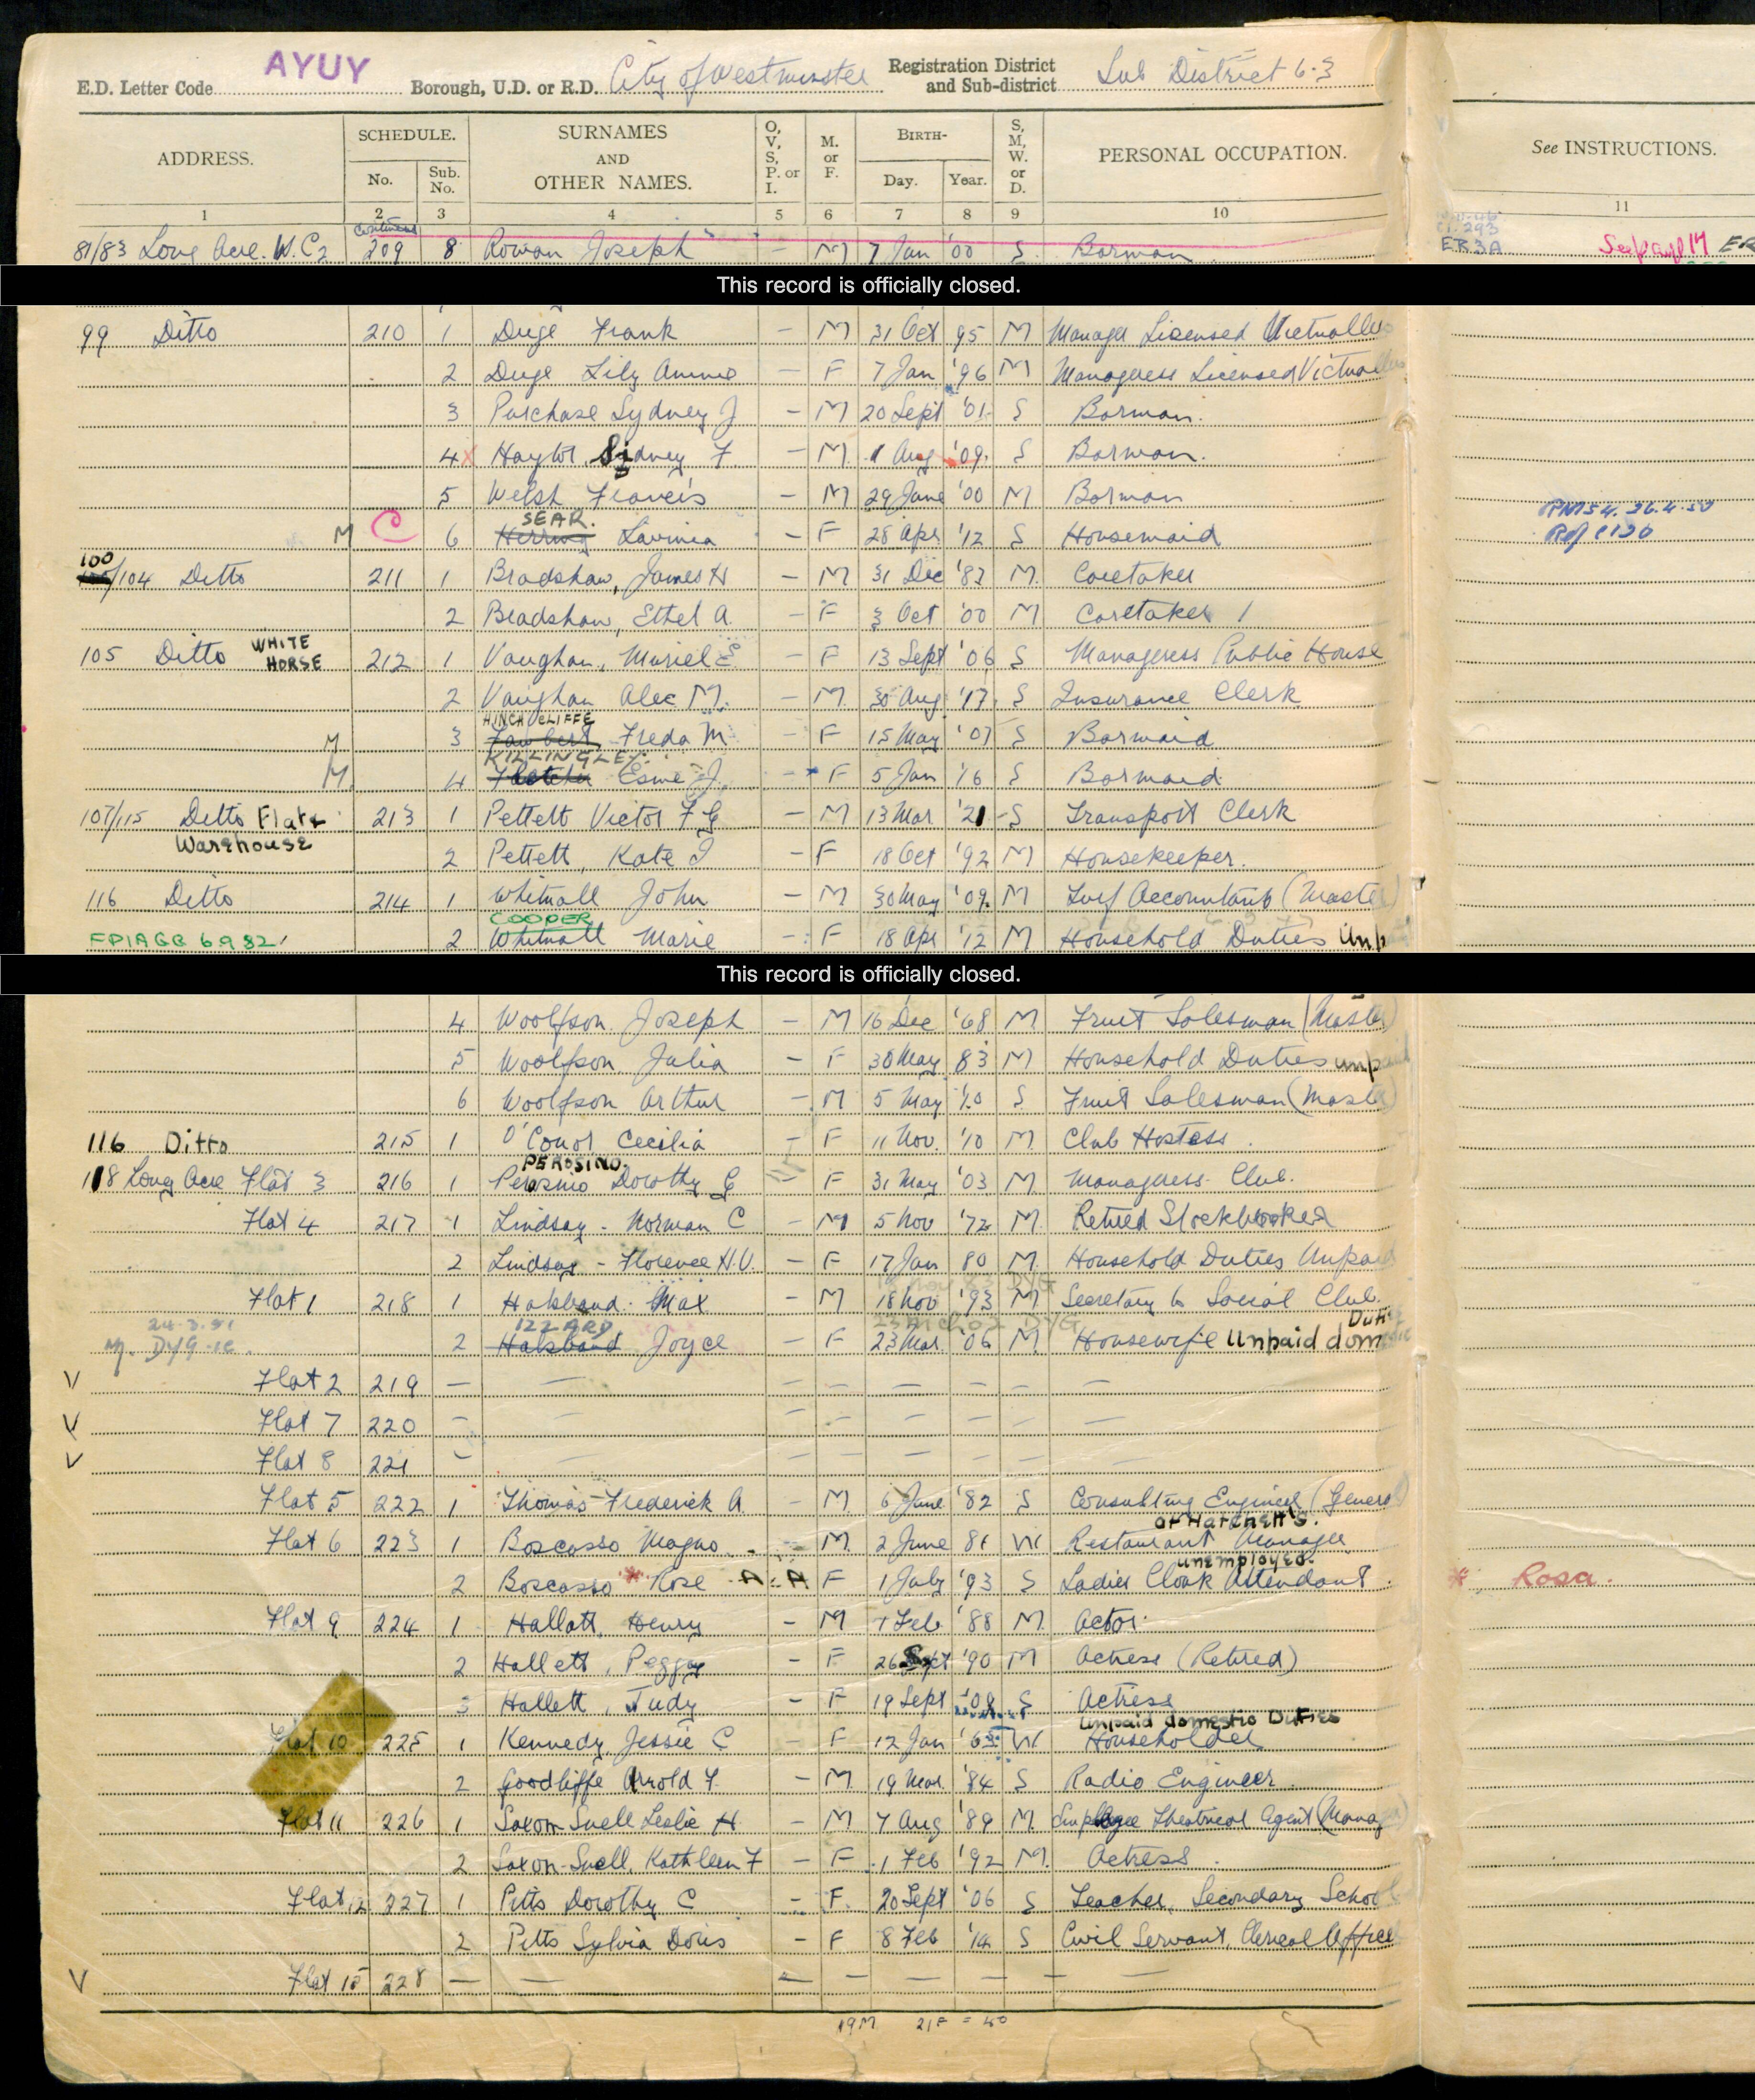 E.D. Letter Code AYUY Borough, U.D. or R.D. City of Westminster Registration District and Sub-district Sub District 6.3
ADDRESS. SCHEDULE. No. Sub. No. SURNAMES AND OTHER NAMES. O, V, S, P. or I. M. or F. BIRTH- Day. Year. S, M, W. or D. PERSONAL OCCUPATION. See INSTRUCTIONS.
1 2 3 4 5 6 7 8 9 10 11
continued
81/83 Long Acre. W.C2 209 8 Rowan Joseph - M 7 Jan '00 S. Barman E.R.3A See page 14
This record is officially closed.
99 Ditto 210 1 Duge Frank - M 31 Oct 95 M Manager Licensed Victualler
2 Duge Lily Annie - F 7 Jan '96 M Manageress Licensed Victualler
3 Purchase Sydney J - M 20 Sept '01 S Barman.
4 Haytor Sidney F. - M. 1 Aug '09. S Barman.
5 Welsh Francis - M 29 June '00 M Barman
SEAR.
M C 6 Herring Lavinia - F 28 Apr '12 S Housemaid
100
/104 Ditto 211 1 Bradshaw, James H - M 31 Dec '82 M. Caretaker
2 Bradshaw, Ethel A. - F 3 Oct '00 M Caretaker 1
105 Ditto WHITE HORSE 212 1 Vaughan, Muriel E. - F 13 Sept '06 S Manageress Public House
2 Vaughan Alec M. - M. 30 Aug '17. S Insurance Clerk
HINCHCLIFFE
M 3 Fawbert Freda M - F 15 May '07 S Barmaid
KILLINGLEY.
M. 4 Fletcher Esme J. - F 5 Jan '16 S Barmaid
107/115 Ditto Flat & Warehouse 213 1 Pettett Victor F G - M 13 Mar '21 S Transport Clerk
2 Pettett, Kate I - F 18 Oct '92 M Housekeeper.
116 Ditto 214 1 Whitnall John - M 30 May '09. M Turf Accountant (Master)
COOPER
2 Whitnall Marie - F 18 Apr '12 M Household Duties Unp
This record is officially closed.
4 Woolfson Joseph - M 16 Dec '68 M. Fruit Salesman (Master)
5 Woolfson Julia - F 30 May 83 M Household Duties unpaid
6 Woolfson Arthur - M 5 May '10 S Fruit Salesman (Master)
116 Ditto 215 1 O'Conor Cecilia - F 11 Nov. '10 M Club Hostess.
PEROSINO.
118 Long Acre Flat 3 216 1 Perosino Dorothy G - F 31 May '03 M. Manageress Club.
Flat 4 217 1 Lindsay - Norman C - M 5 Nov '72 M. Retired Stockbroker
2 Lindsay - Florence H.V. - F 17 Jan 80 M. Household Duties Unpaid
Flat 1 218 1 Halsband. Max - M 18 Nov '93 M Secretary to Social Club.
24.3.51 IZZARD Duties
2 Halsband Joyce - F 23 Mar. '06 M. Housewife Unpaid domestic
V Flat 2 219 — — — — — — — —
V Flat 7 220 — — — — — — — —
V Flat 8 221 — — — — — — — —
Flat 5 222 1 Thomas Frederick A. - M. 6 June '82 S Consulting Engineer (General)
of Hatchett's.
Flat 6 223 1 Boscasso Magno - M. 2 June 81 W Restaurant Manager
unemployed.
2 Boscasso * Rose - F 1 July '93 S Ladies Cloak Attendant. * Rosa.
Flat 9 224 1 Hallatt, Henry - M 1 Feb '88 M. Actor.
2 Hallett, Peggy - F 26 Sept '90 M Actress (Retired)
3 Hallett, Judy - F 19 Sept '08 S Actress
Unpaid domestic Duties
Flat 10 225 1 Kennedy, Jessie C - F 12 Jan '63 W Householder
2 Goodliffe Arnold F. - M. 19 Mar. '84 S Radio Engineer.
Flat 11 226 1 Saxon-Snell Leslie H - M 7 Aug '89 M. Theatrical Agent (Manag
2 Saxon-Snell, Kathleen F - F 1 Feb '92 M. Actress.
Flat 12 227 1 Pitts Dorothy C - F. 20 Sept '06 S Teacher, Secondary School
2 Pitts Sylvia Doris - F 8 Feb '14 S Civil Servant, Clerical Officer
V Flat 15 228 — — — — — — — —
19M 21F = 40